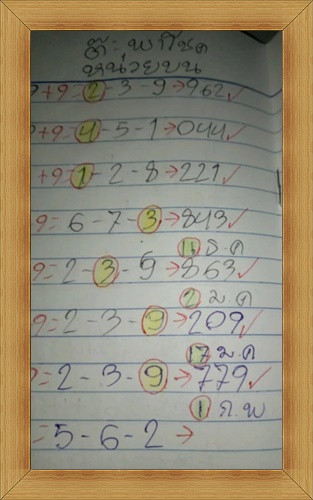 ต๊ะ พาโชค
หน่วยบน
+9=2-3-9→962✓
+9=4-5-1→044✓
+9=1-2-8→221✓
9=6-7-3→843✓
16 ธ.ค
9=2-3-9→863✓
2 ม.ค
9=2-3-9→209✓
17 ม.ค
=2-3-9→779✓
1 ก.พ
=5-6-2→